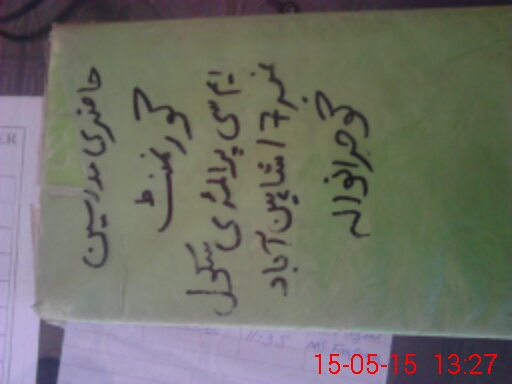 حاضری مدرسین
گورنمنٹ
ایم سی پرائمری سکول
نمبر 7 شاہین آباد
گوجرانوالہ
11:35
15-05-15 13:27